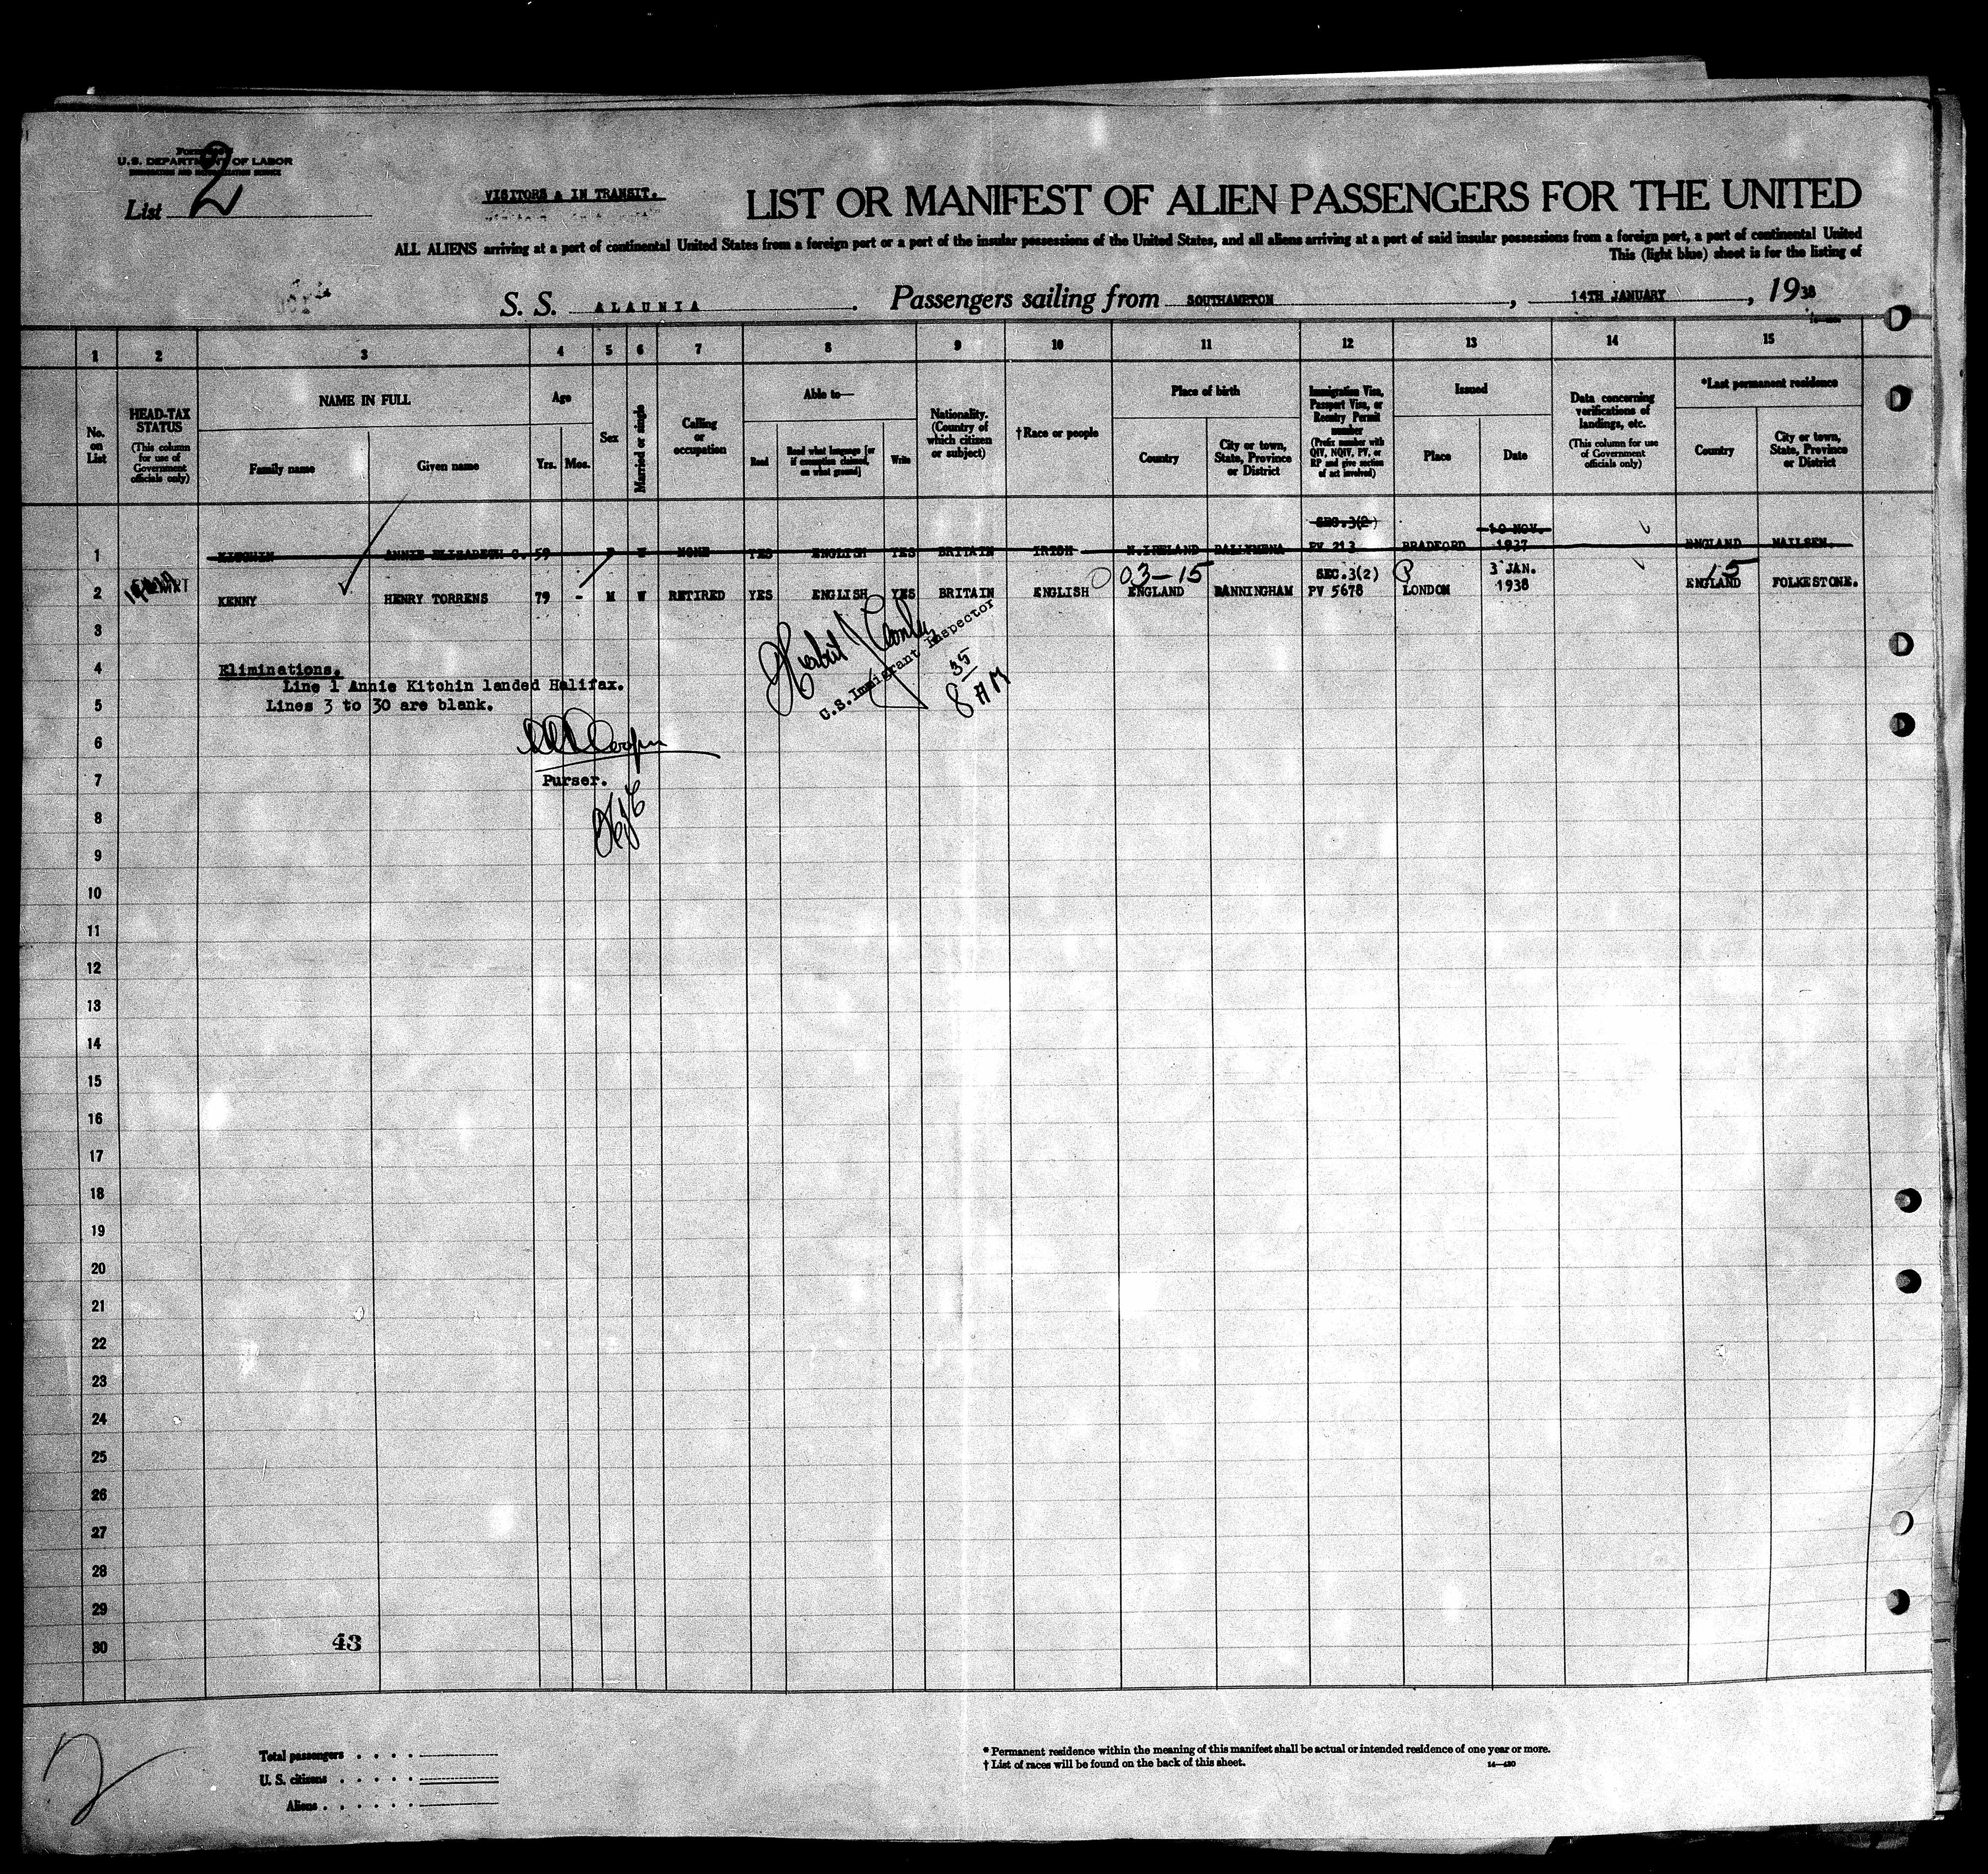 U.S. DEPARTMENT OF LABOR
List 2
VISITORS & IN TRANSIT.
LIST OR MANIFEST OF ALIEN PASSENGERS FOR THE UNITED
ALL ALIENS arriving at a port of continental United States from a foreign port or a port of the insular possessions of the United States, and all aliens arriving at a port of said insular possessions from a foreign port, a port of continental United
This (light blue) sheet is for the listing of
S. S. ALAUNIA. Passengers sailing from SOUTHAMPTON, 14TH JANUARY, 1938
1 2 3 4 5 6 7 8 9 10 11 12 13 14 15
No. on List
HEAD-TAX STATUS
(This column for use of Government officials only)
NAME IN FULL
Family name
Given name
Age
Yrs. Mos.
Sex
Married or single
Calling or occupation
Able to—
Read
Read what language [or if exemption claimed, on what ground]
Write
Nationality. (Country of which citizen or subject)
† Race or people
Place of birth
Country
City or town, State, Province or District
Immigration Visa, Passport Visa, or Reentry Permit number
(Prefix number with QIV, NQIV, PV, or RP and give section of act involved)
Issued
Place
Date
Data concerning verifications of landings, etc.
(This column for use of Government officials only)
*Last permanent residence
Country
City or town, State, Province or District
SEC. 3(2) 10 NOV.
1 KITCHIN ANNIE ELIZABETH C. 59 F W NONE YES ENGLISH YES BRITAIN IRISH N.IRELAND BALLYMENA PV 213 BRADFORD 1937 ENGLAND NAILSEA.
03-15 SEC.3(2) P 3 JAN. 15
2 EXEMPT KENNY HENRY TORRENS 79 - M W RETIRED YES ENGLISH YES BRITAIN ENGLISH ENGLAND MANNINGHAM PV 5678 LONDON 1938 ENGLAND FOLKESTONE.
3
U.S. Immigrant Inspector
8 35 AM
4 Eliminations.
Line 1 Annie Kitchin landed Halifax.
5 Lines 3 to 30 are blank.
6
7 Purser.
8
9
10
11
12
13
14
15
16
17
18
19
20
21
22
23
24
25
26
27
28
29
30 43
2
Total passengers . . . .
U. S. citizens . . . . .
Aliens . . . . . .
* Permanent residence within the meaning of this manifest shall be actual or intended residence of one year or more.
† List of races will be found on the back of this sheet.
14—420